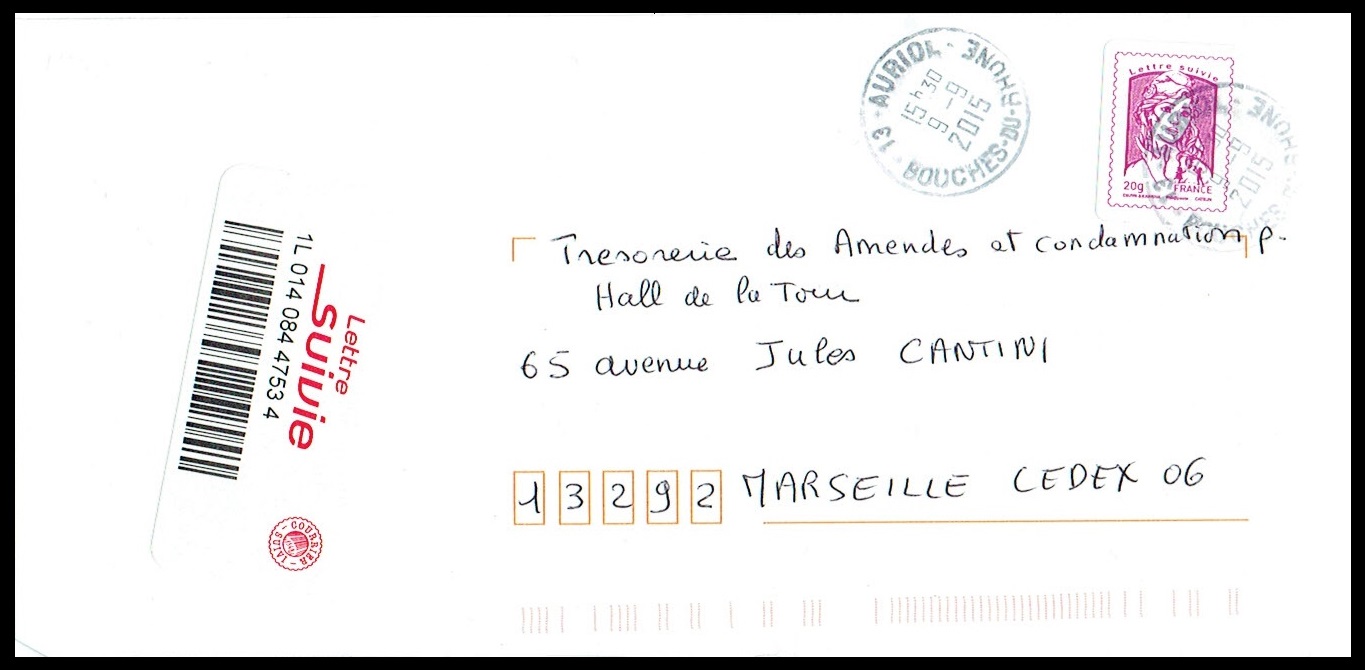 13 - AURIOL - BOUCHES-DU-RHONE
15h30
9 -9
2015
Lettre suivie
20g FRANCE
RHONE
-9
2015
1L 014 084 4753 4
Lettre
suivie
COURRIER SUIVI
Tresorerie des Amendes et condamnation p.
Hall de la Tour
65 avenue Jules CANTINI
13292 MARSEILLE CEDEX 06